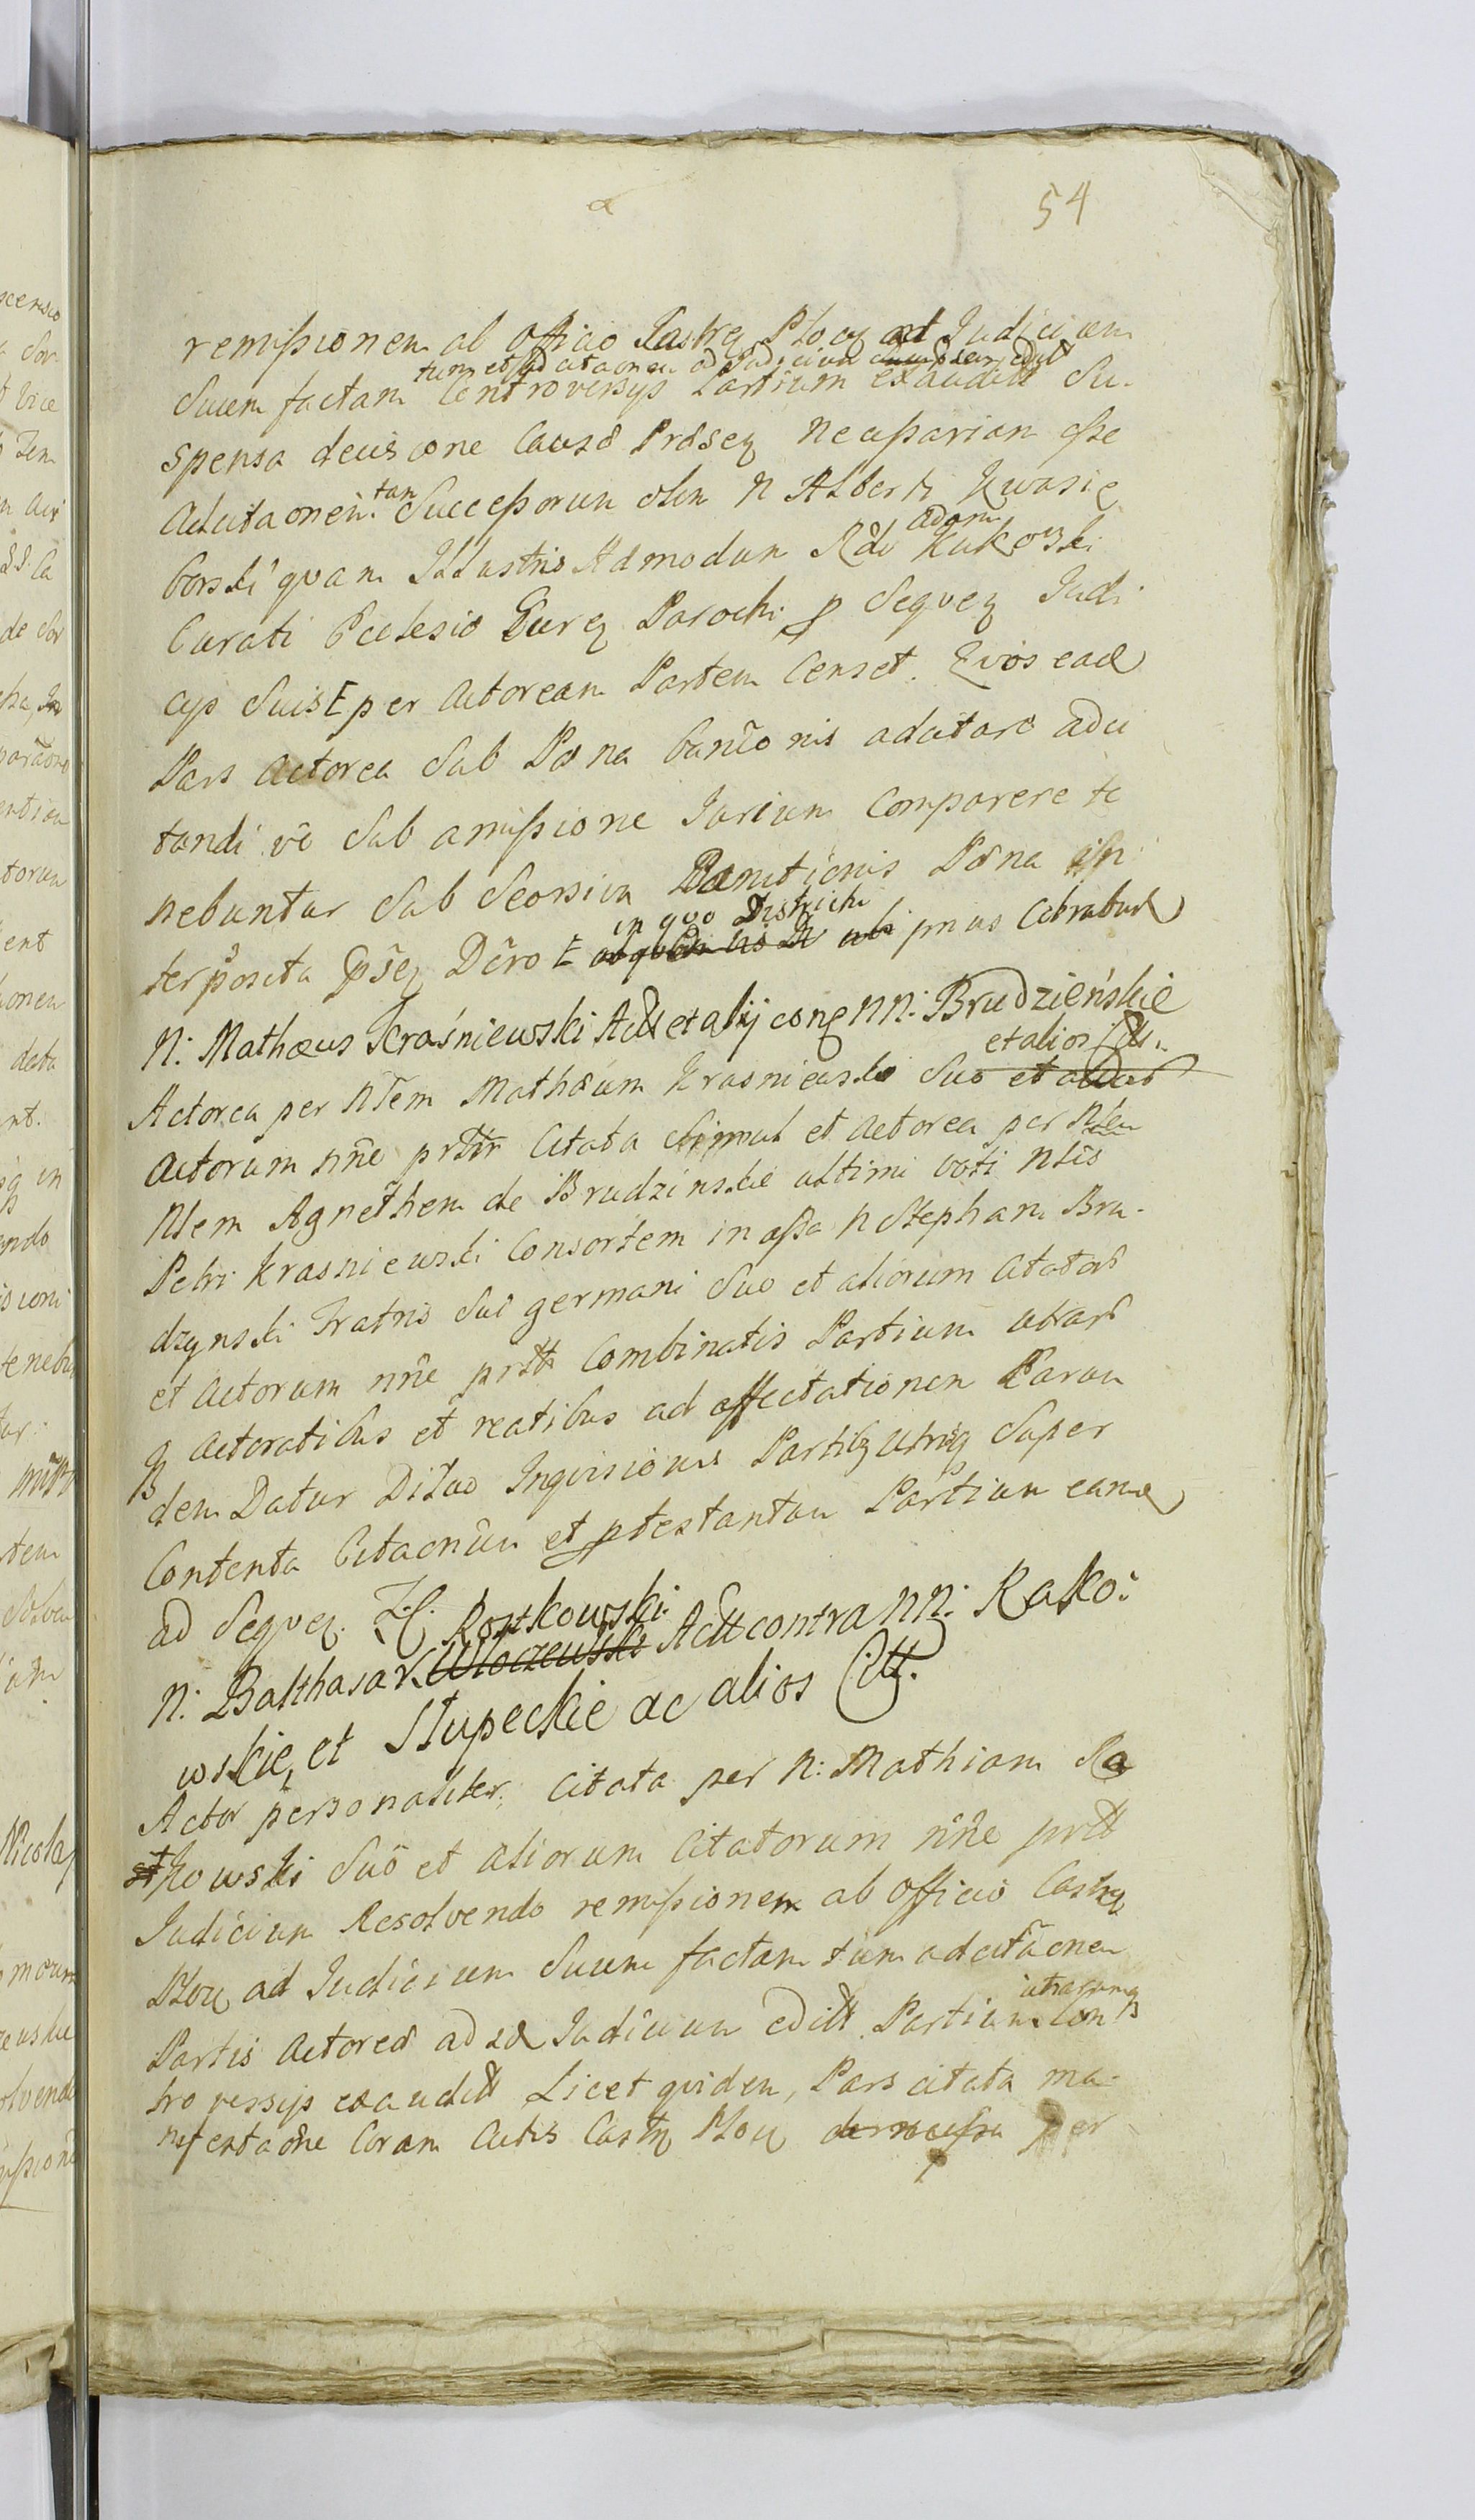 54
remissionem ab Officio Castrq Plocq ad Judicium
tum et ad citaonem ad Judicium edit
Suum factam Controversys Partium exaudit Su-
spensa decisione Causæ Præseq necessariam esse
tan
Adcitaonem Successorum olim N Alberti Kwasie
Adam
borski quam Illustris Admodum Rdi Kukowski
Curati Ecclesiæ Parochi p Sequeq Judi
cys Suis per Actoream Partem Censet. Qvos ead
Pars Actorea Sub Pæna banonis adcitare adci
tandi vo Sub amissione Jurium Comparere te
nebuntur Sub Seorsiva Pæna in
terposita Pseq Dcro
in quo Districtu
prius Citabatur
N: Mathæus Kraśniewski Act et alij conq NN: Brudzieńskie
et alios Citt.
Actorea per Nlem Mathæum Krasniewski Suo et
Actorum nñe prttr Citata Simul et Actorea per
Nlem Agnethem de Brudzinskie ultimi voti Nlis
Petri Krasniewski Consortem in assa N Stephani Bru-
dzynski Fratris Sui germani Suo et aliorum Citator
et Actorum nñe prtt Combinatis Partium utrar
q Actoratibus et reatibus ad affectationem Earun
dem Datur Dilao Inqvisionis Partibq utrisq Super
Contenta Citaonum et ptestantan Partium eand
ad Seqveq.
Rostkowski
N: Balthasar Włoczewski Actt contra NN: Rako:
wskie, et Słupeckie ac alios Citt.
Actor personaliter, Citata per N: Mathiam Ra
kowski Suo et aliorum Citatorum nñe prtt
Judicium Resolvendo remissionem ab Officio Castrq
Plocq ad Judicium Suum factam tum adcitaonem
utrarumq
Partis Actoreæ ad se Judicium editt Partium Con
troversys exauditt Licet qvidem, Pars citata ma-
nifestaone Coram Actis Castrq Plocq per